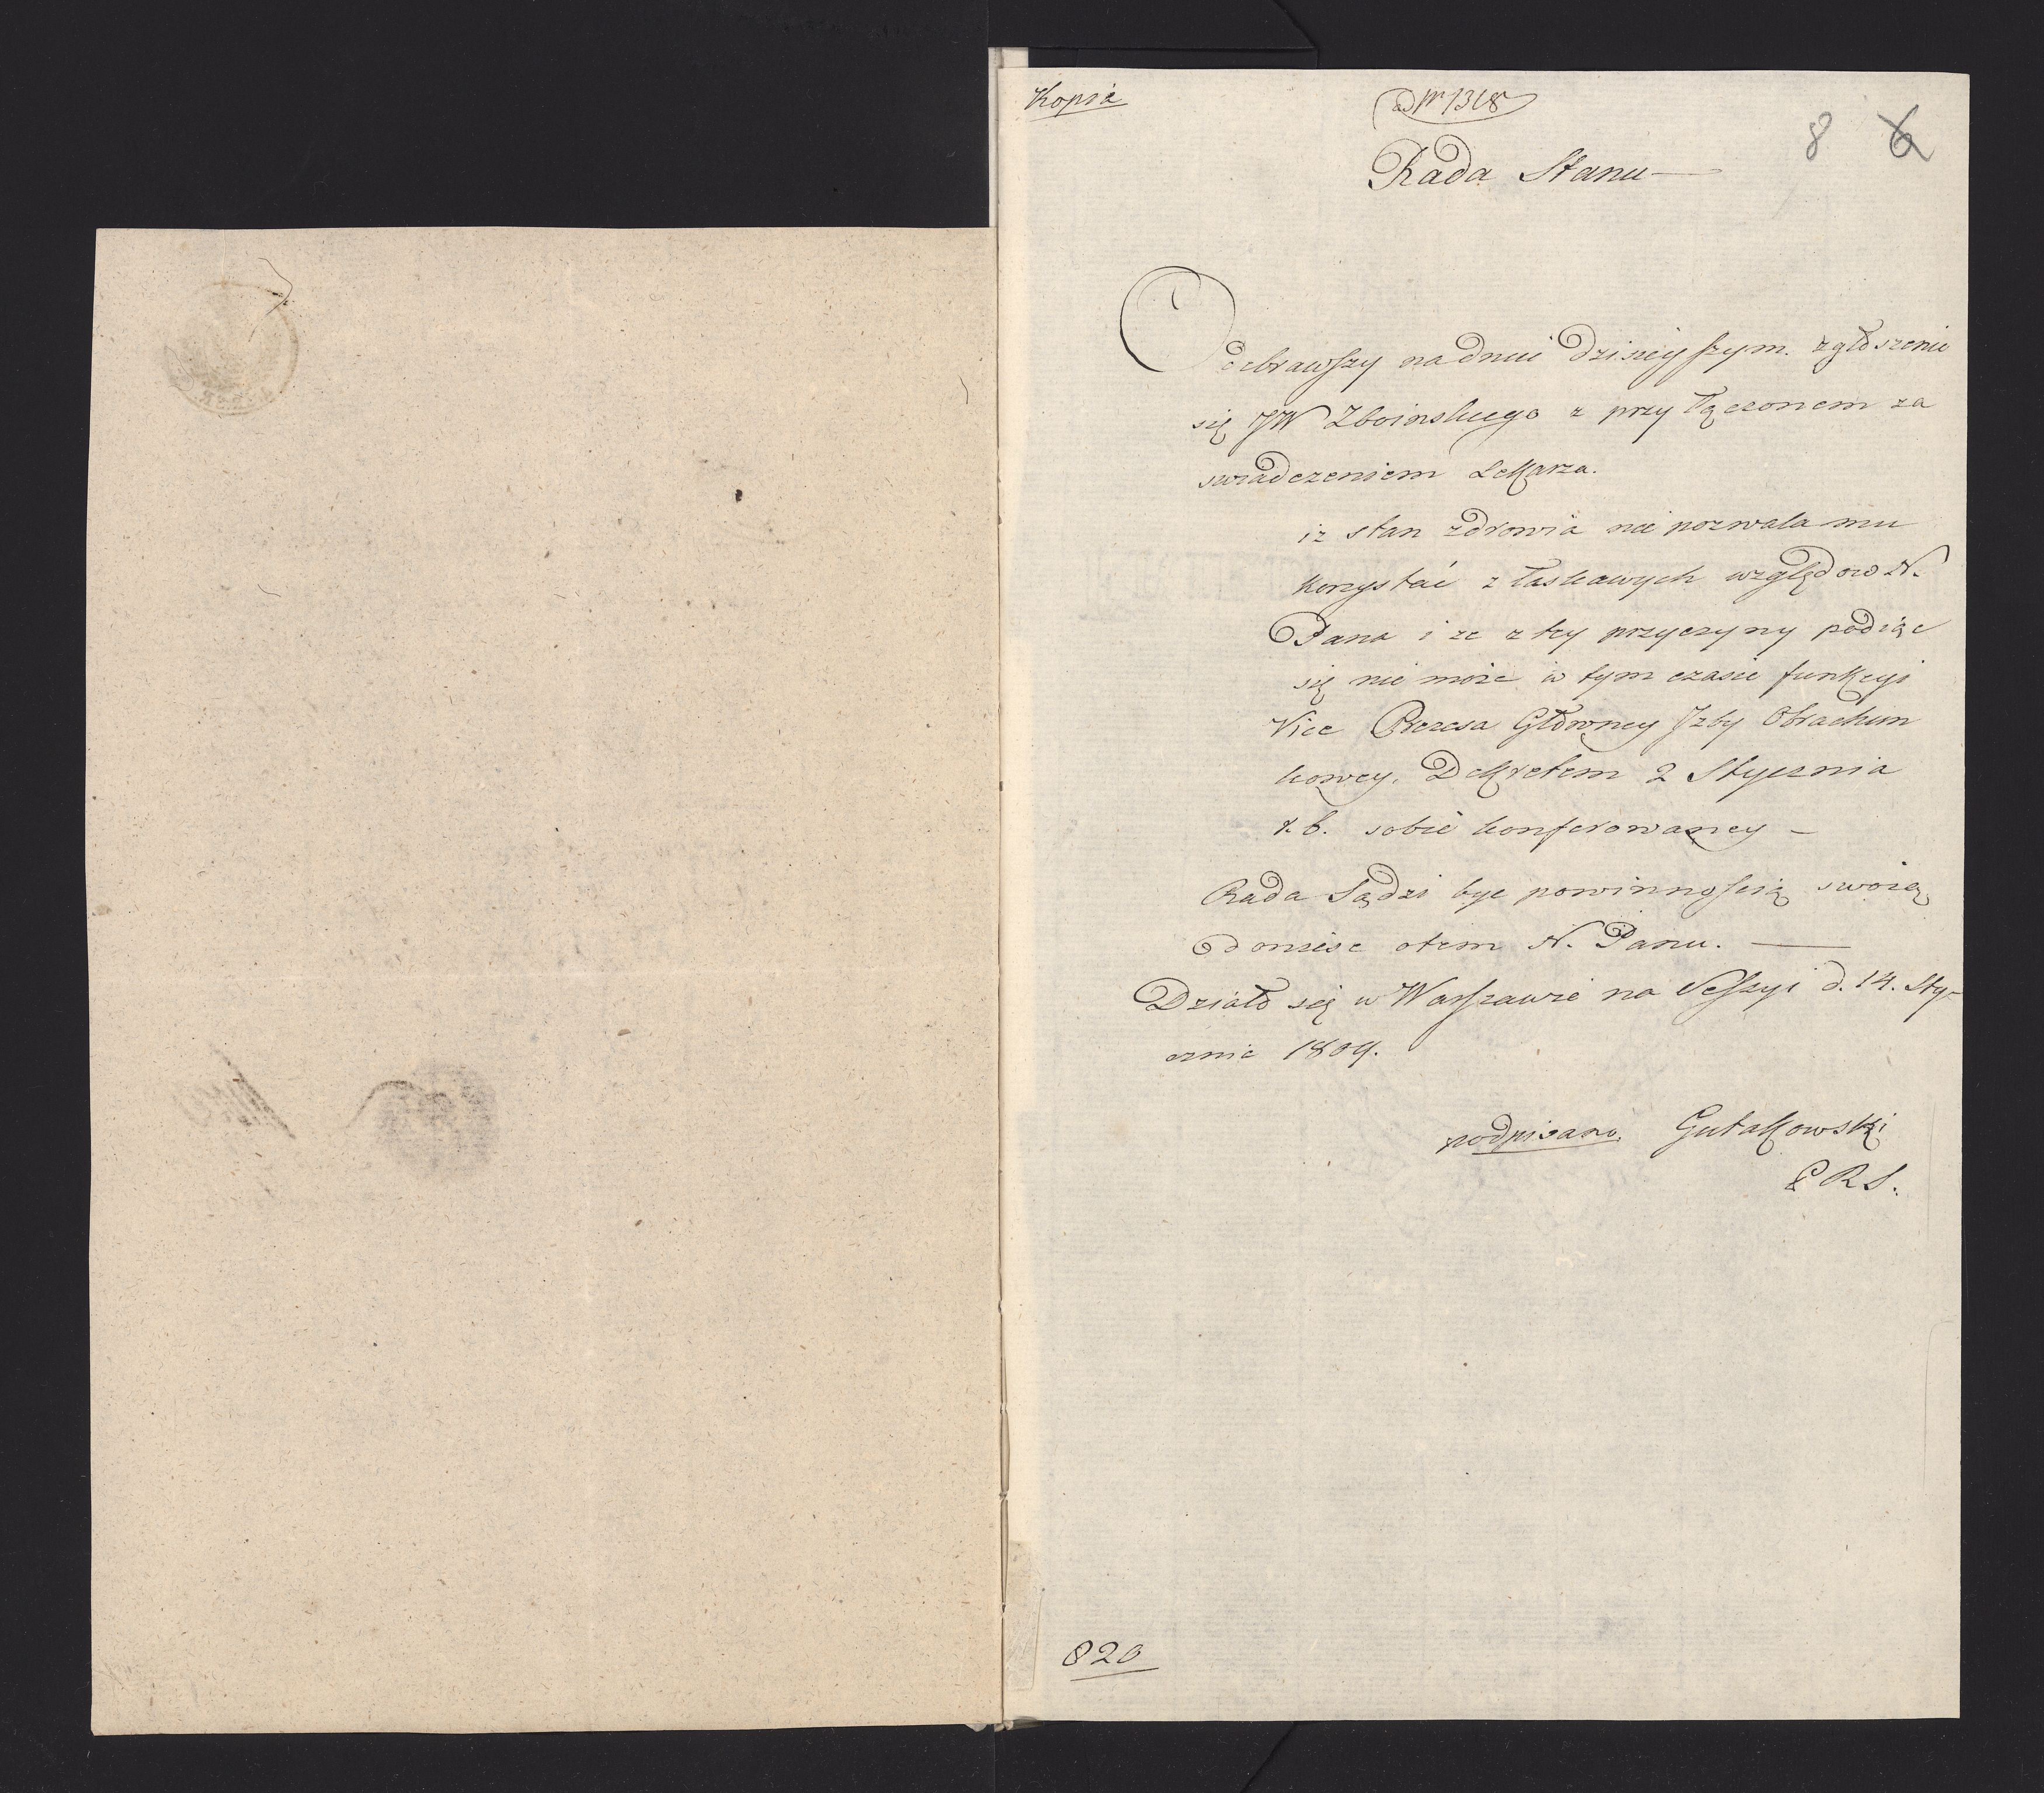 Kopia
ad Nr 1318
8 6
Rada Stanu —
Odebrawszy na dniu dzisieyszym zgłoszenie
się JW Zboinskiego z przyłączonem za
swiadczeniem Lekarza.
iz stan zdrowia nie pozwala mu
korzystać z łaskawych względow N.
Pana i ze z tey przyczyny podiąc
się nie może w tym czasie funkcyi
Vice Prezesa Głowney Izby Obrachun
kowey, Dekretem 2 Stycznia
r. b. sobie konferowaney —
Rada Sądzi byc powinnoscią swoią
doniese otem N. Panu. —
Działo się w Warszawie na Sessyi d. 14. Sty-
cznia 1809.
podpisano. Gutakowski
P R S.
820